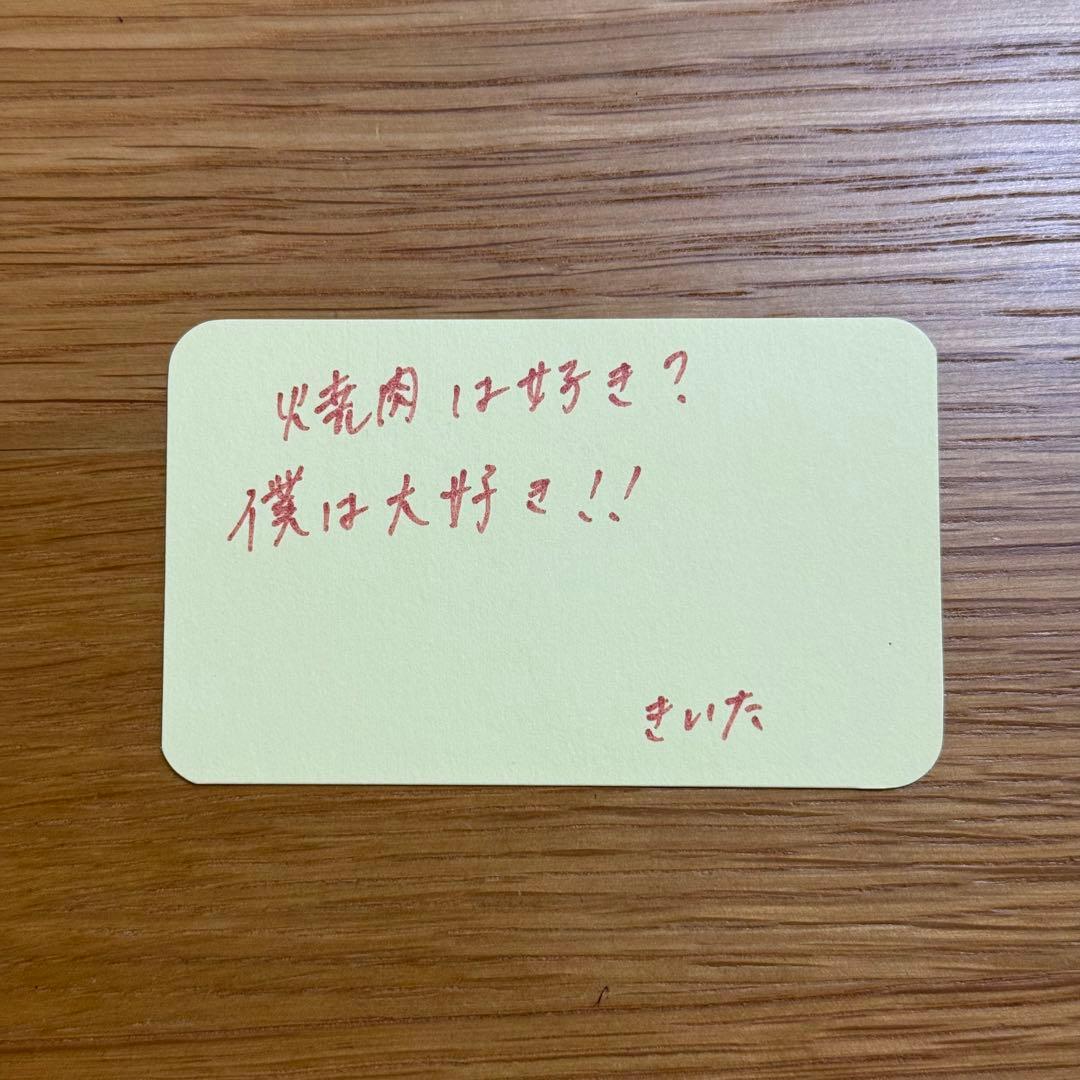 焼肉は好き?
僕は大好き!!
きいた